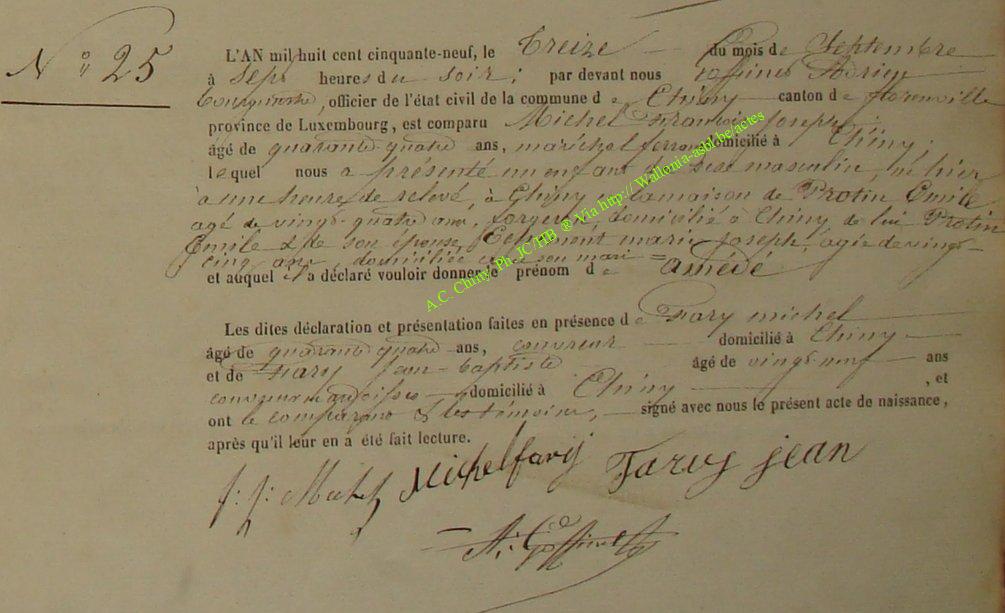 N° 25
L'AN mil huit cent cinquante-neuf, le treize du mois de Septembre
à Sept heures du soir; par devant nous Goffinet Adrien
Bourgmestre, officier de l'état civil de la commune de Chiny canton de florenville
province de Luxembourg, est comparu Michel François Joseph
âgé de quarante quatre ans, maréchal ferrant domicilié à Chiny,
lequel nous a présenté un enfant du sexe masculin, né hier
à une heure de relevé, à Chiny en la maison de Protin Emile
agé de vingt-quatre ans, forgeron, domicilié à Chiny de lui Protin
Emile & de son épouse, marie Joseph, agée de vingt
cinq ans, domiciliée son mari
et auquel il a déclaré vouloir donner le prénom de amédé
Les dites déclaration et présentation faites en présence de Fary michel
âgé de quarante quatre ans, couvreur domicilié à Chiny
et de Fary Jean-Baptiste âgé de vingt-neuf ans
couvreur domicilié à Chiny, et
ont le comparant & les témoins, signé avec nous le présent acte de naissance,
après qu'il leur en a été fait lecture.
f: j: Michel Michel fary Fary jean
A: Goffinet
A.C. Chiny Ph JC/HB ® Via http://Wallonia-asbl.be/actes